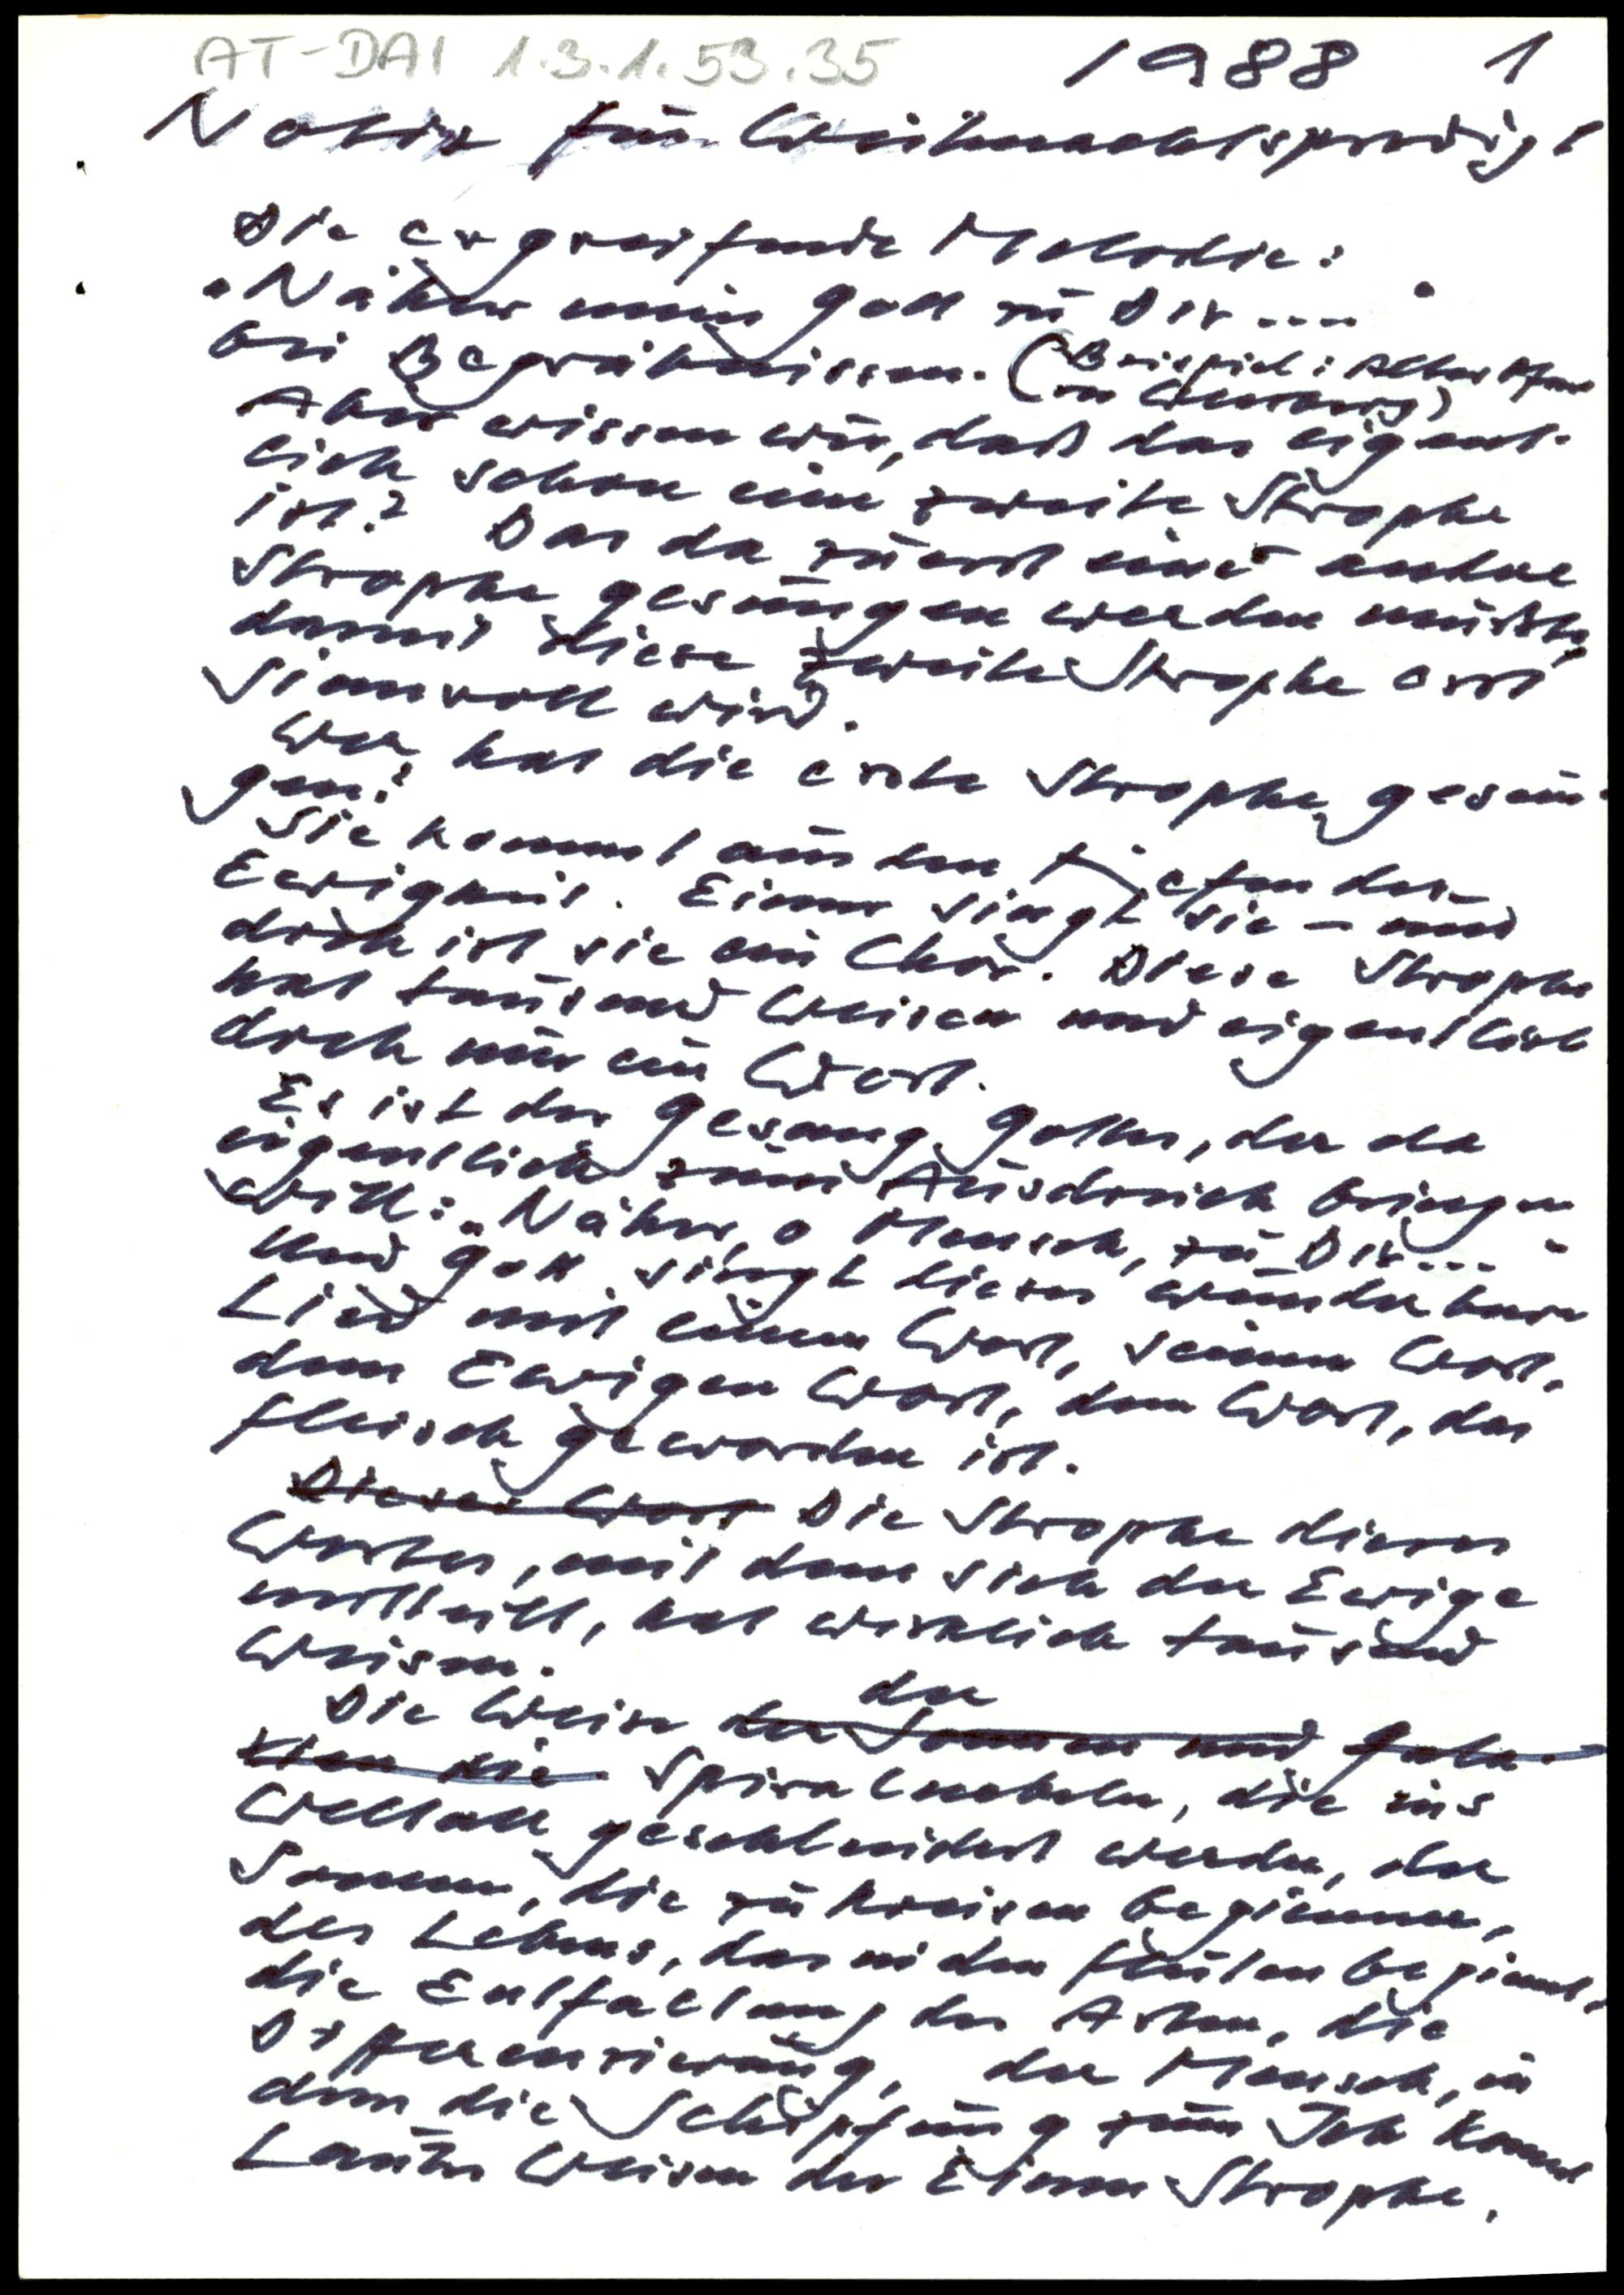 AT-DAI 1.3.1.53.35 1988 1
Notiz für Weihnachtspredigt
Die ergreifende Melodie:
"Näher mein Gott zu Dir ...."
bei Begräbnissen. (Beispiel: Alter
Aber wissen wir, daß das eigent-
lich schon eine zweite Strophe
ist? Das da zuerst eine andere
Strophe gesungen werden müßte,
damit diese zweite Strophe erst
sinnvoll wird.
Wer hat die erste Strophe gesun-
gen?
Sie kommt aus den Tiefen der
Ewigkeit. Einer singt sie – und
doch ist sie ein Chor. Diese Strophe
hat tausend Weisen und eigentlich
doch nur ein Wort.
Es ist der Gesang Gottes, der da
eigentlich zum Ausdruck bringen
will: "Näher, o Mensch, zu Dir..."
Und Gott singt dieses wunderbare
Lied mit einem Wort, seinem Wort,
dem Ewigen Wort, dem Wort, das
Fleisch geworden ist.
Dieses Wort Die Strophe dieses
Wortes, mit dem sich der Ewige
mitteilt, hat wirklich tausend
Weisen.
der
Die Weise der Sonnen und
die Spiralnebeln, die ins
Weltall geschleudert werden, der
Sonnen, die zu kreisen beginnen,
des Lebens, das in den Fluten beginnt,
die Entfaltung der Arten, die
Differenzierung, der Mensch, in
dem die Schöpfung zum Ich kommt
Lauter Weisen der Einen Strophe.